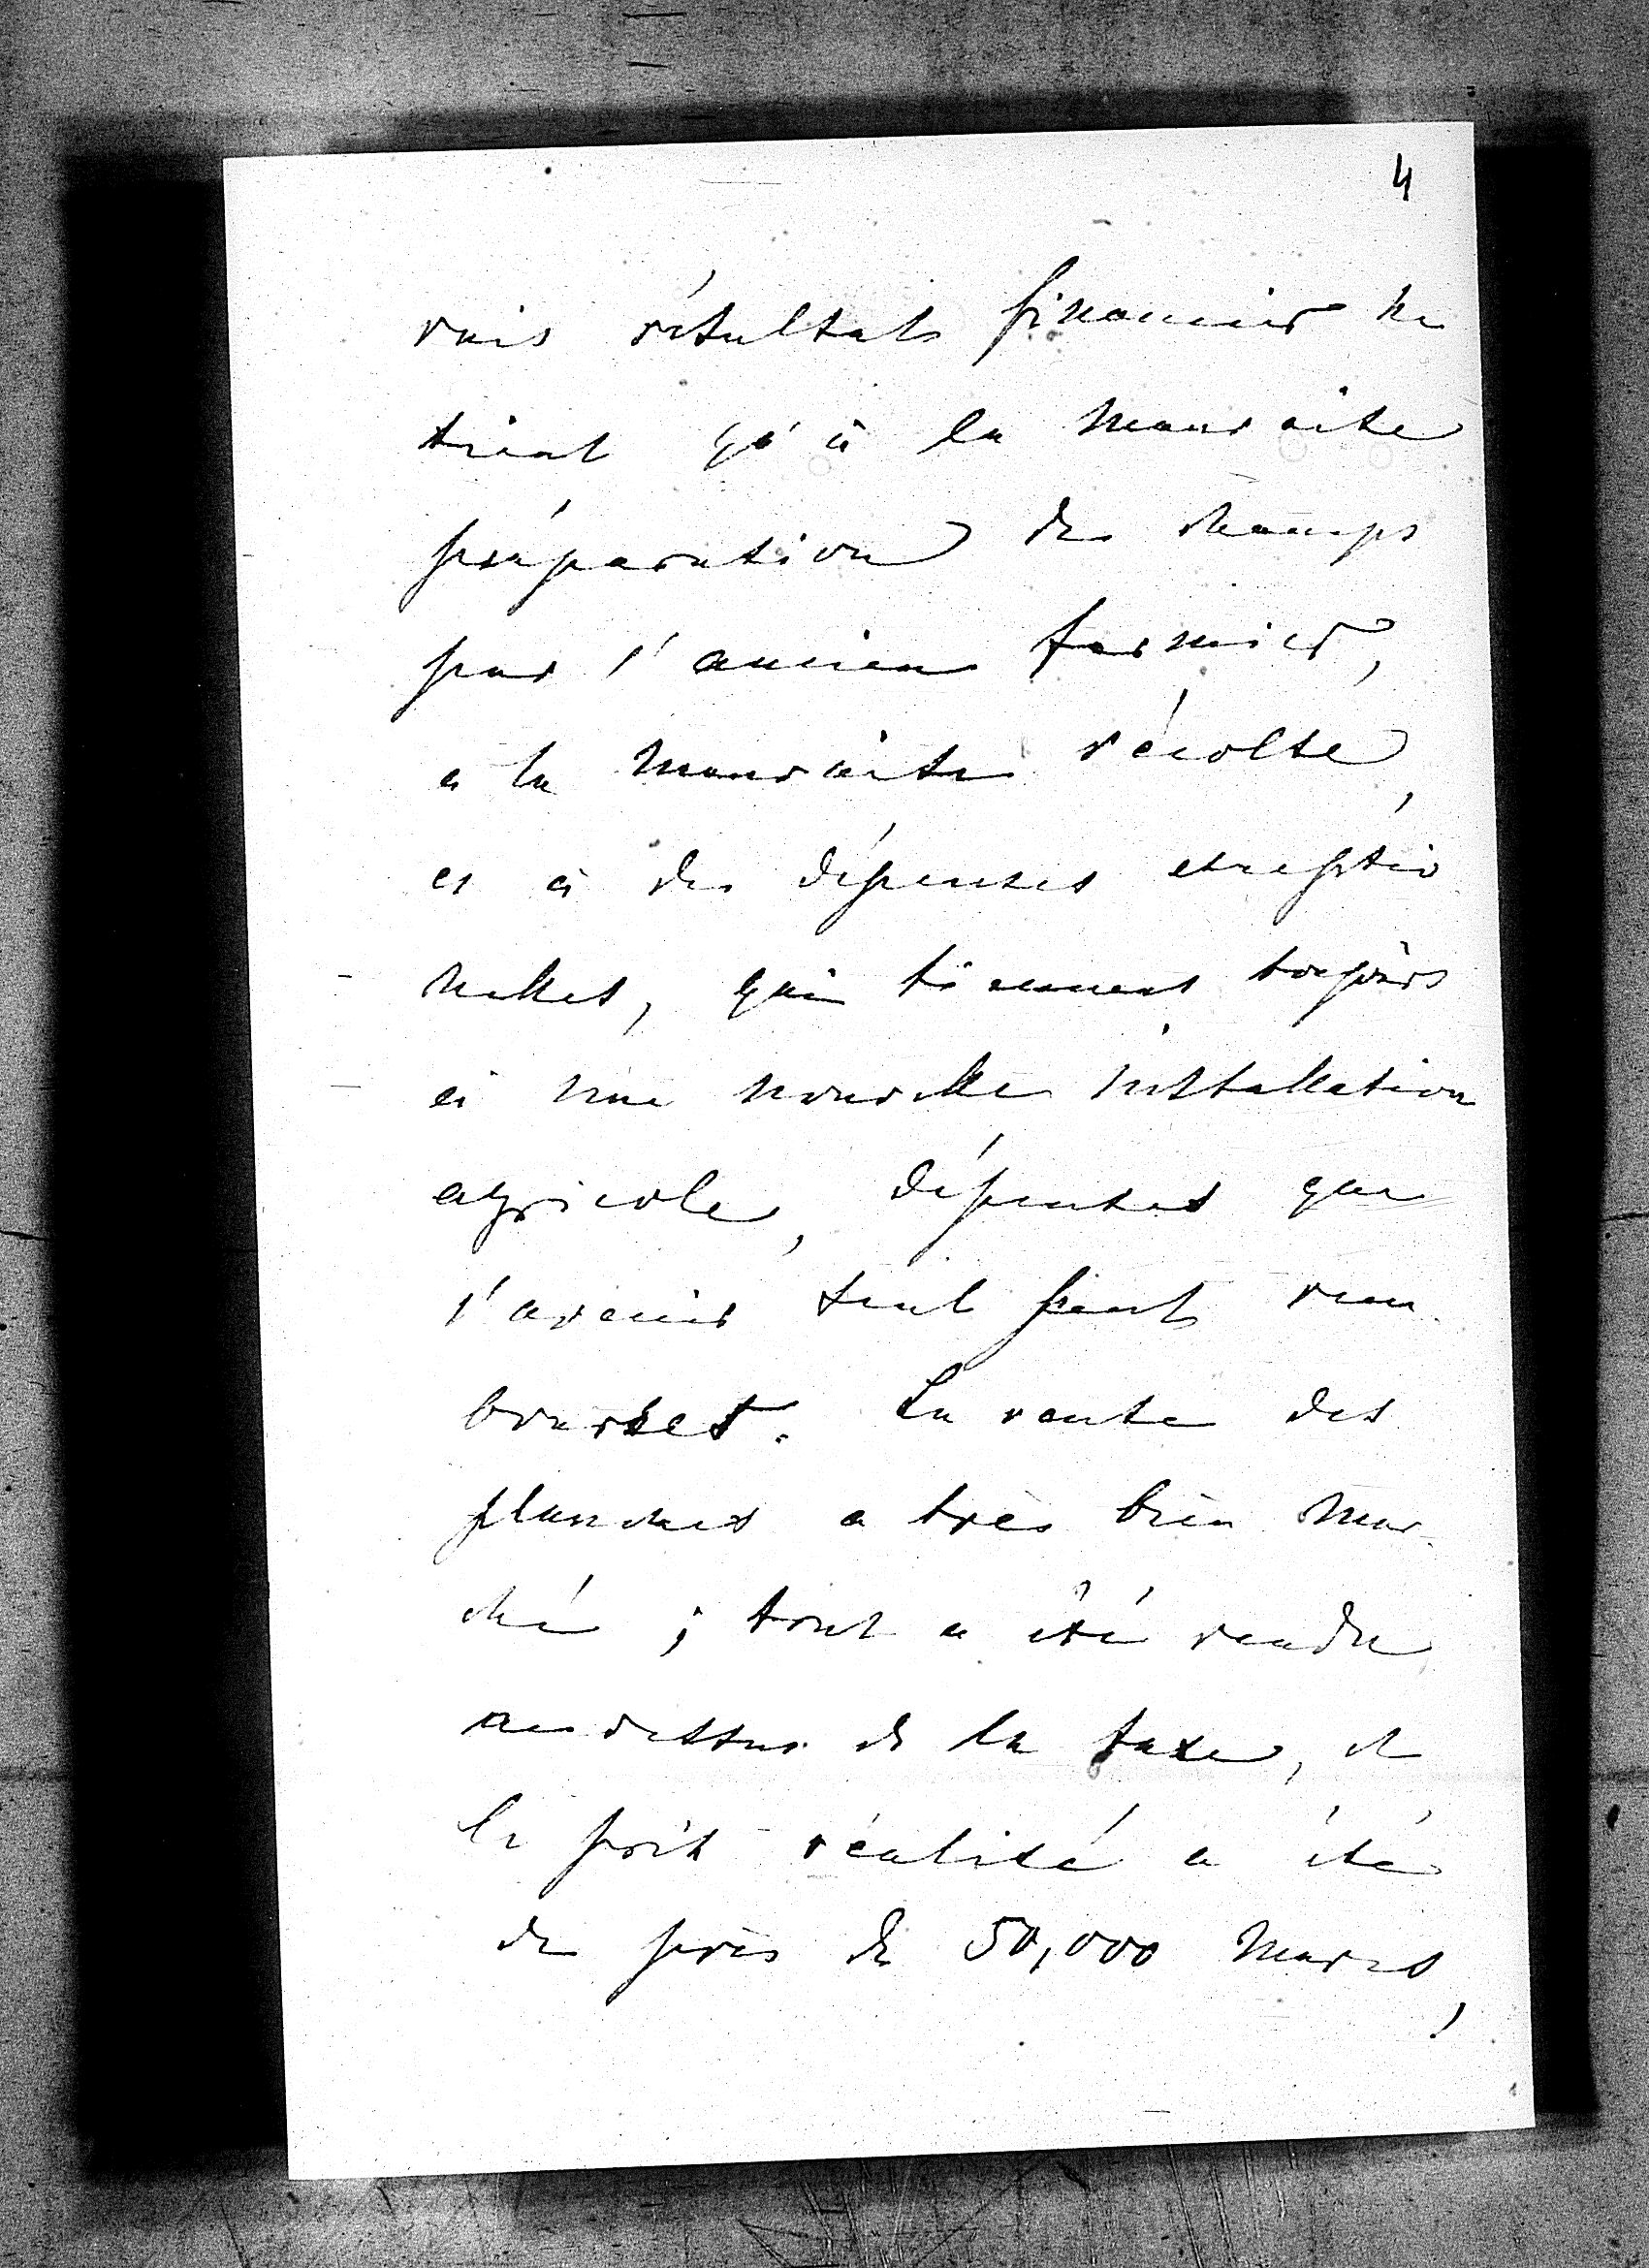 4
vais résultat financier ne
tient qu'à la mauvaise
préparation des champs
par l'ancien fermier,
a la mauvaise récolte,
et à des dépenses exceptio
nelles, qui tiennent toujours
à une nouvelle installation
agricole, dépenses que
l'avenir seul peut rem
bourser. La vente des
planches a très bien mar-
ché ; tout a été vendu
au dessus de la taxe, et
le prix réalisé a été
de près de 50,000 marcs,